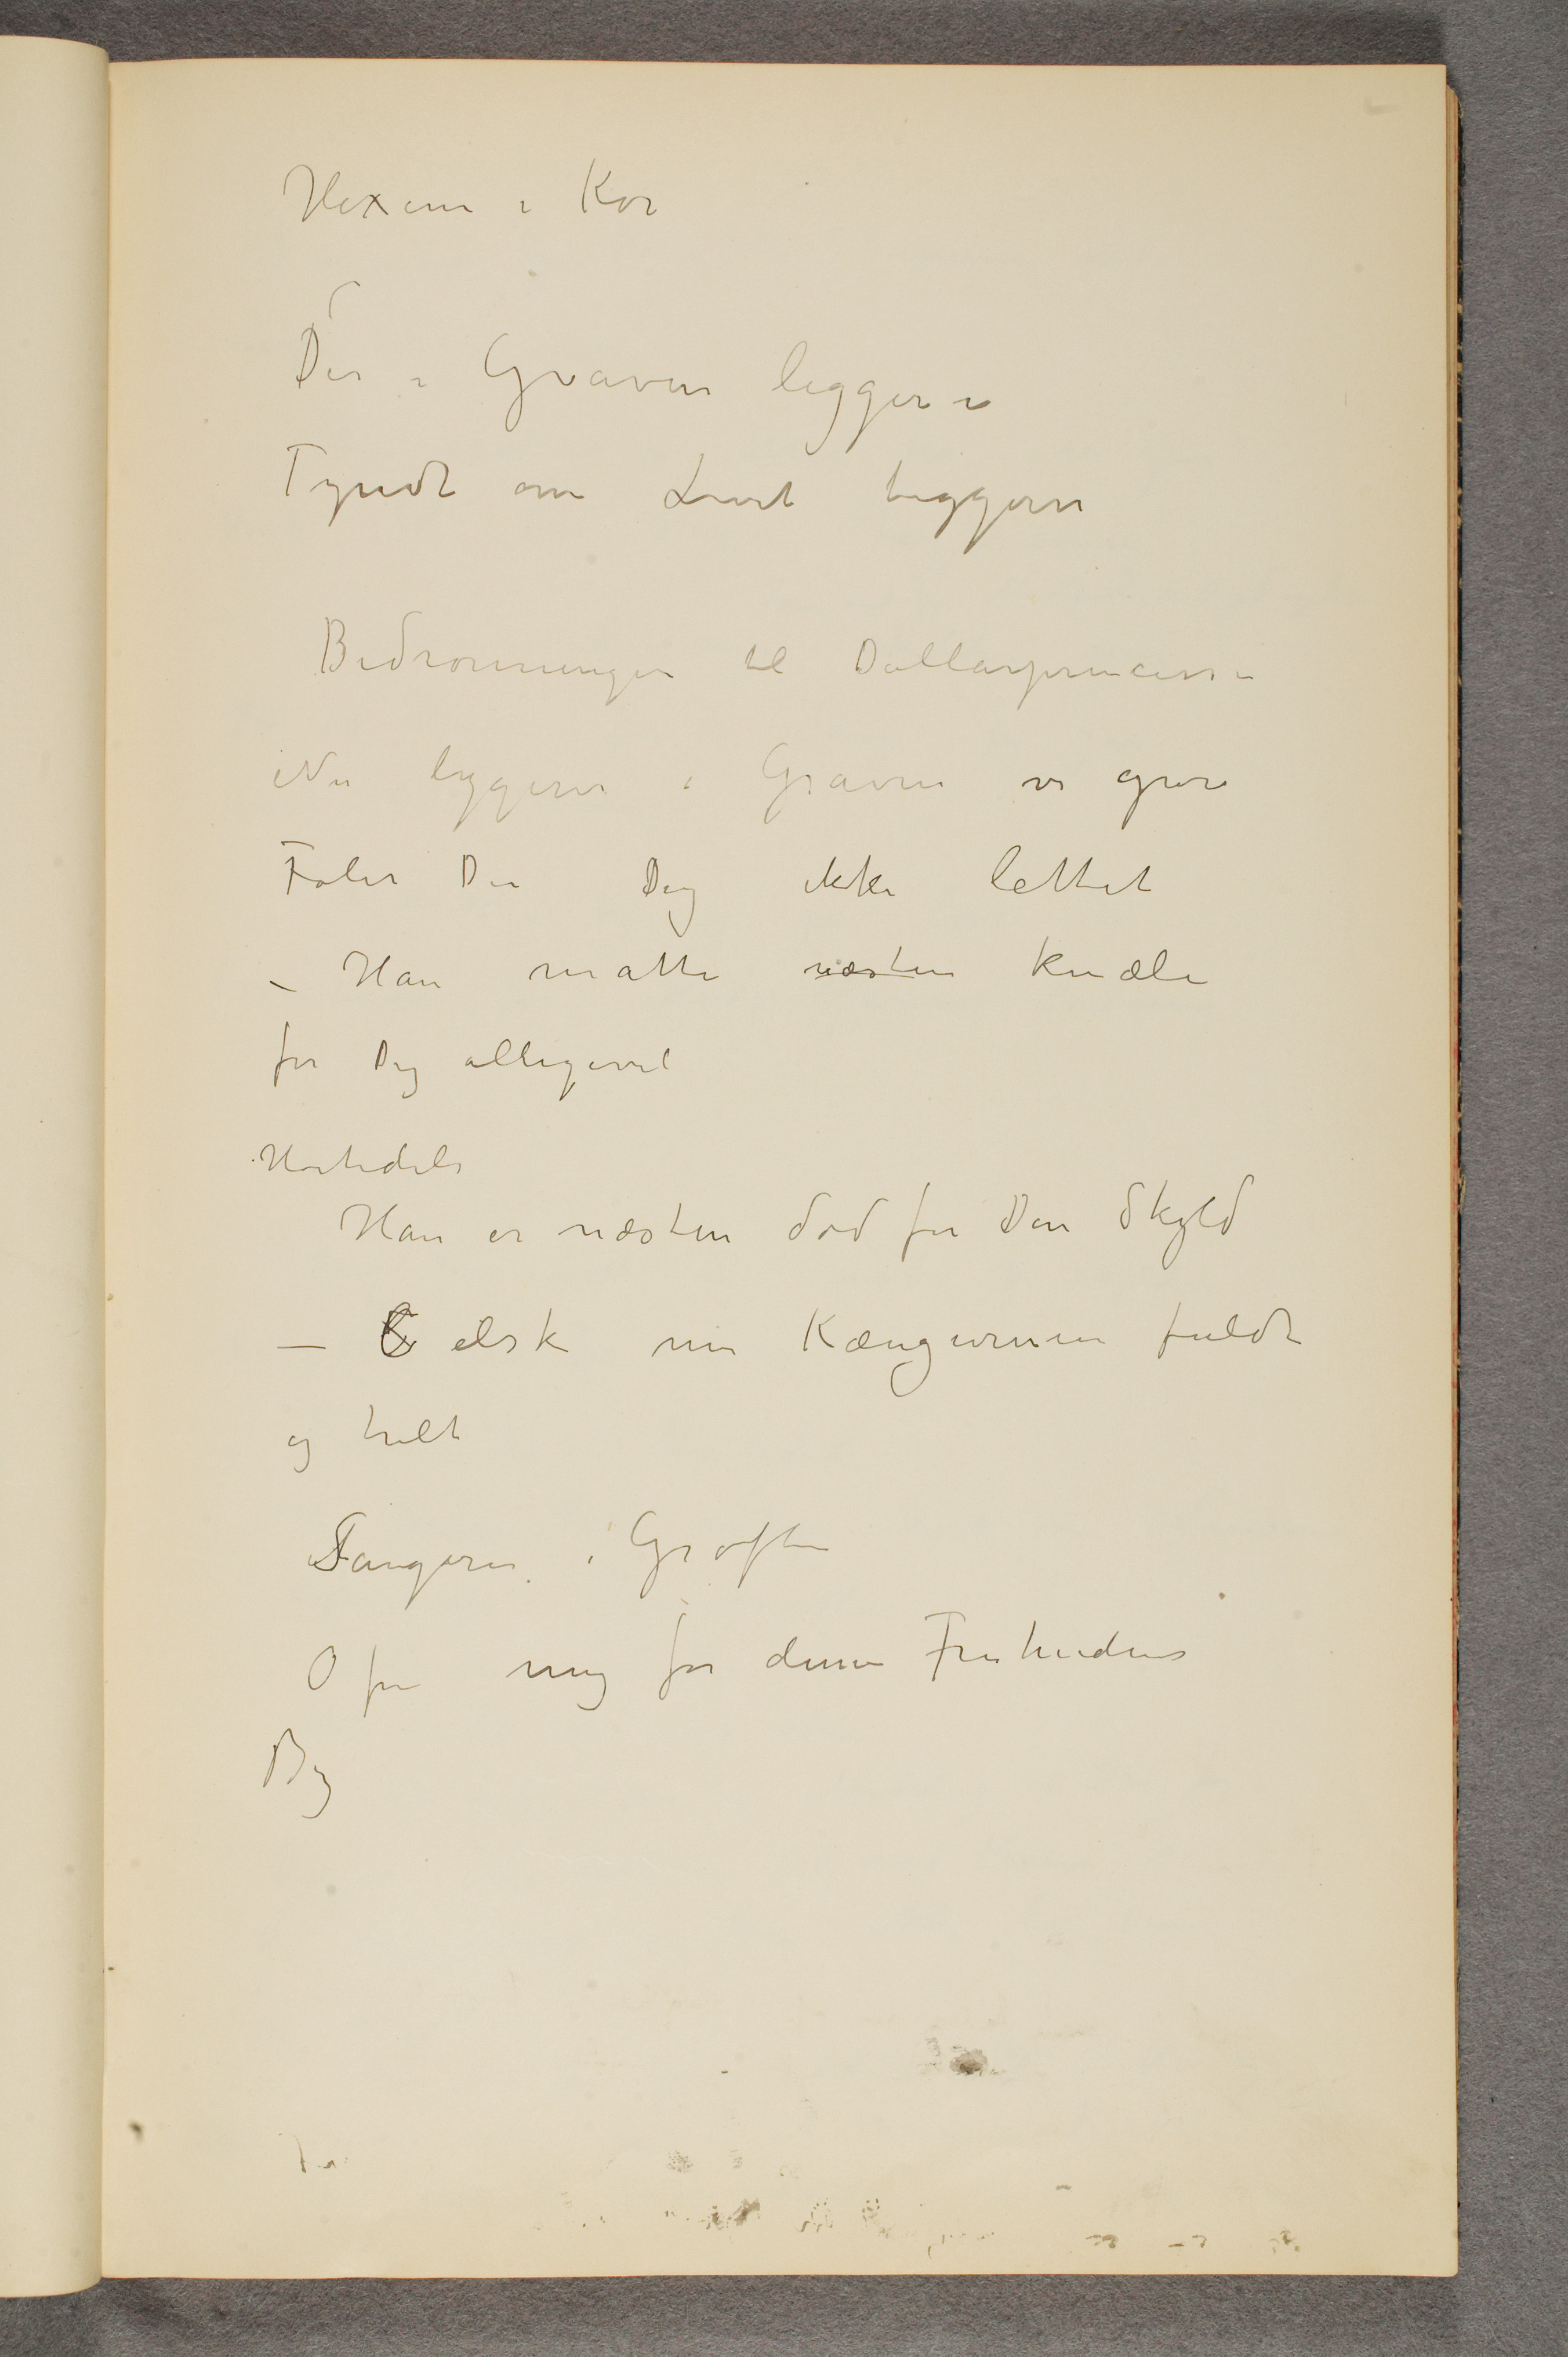 Hexene i Kor
Der i Graven ligger 'n
Tyndt om Livet tigger'n
Bedronningen til Dollarprincessen
Nu ligger'n i Graven
Føler Du Dig ikke lettet
– Han måtte næsten knæle
for Dig alligevel
Han er næsten død for Din Skyld
– elsk nu Kænguruen fuldt
og helt
Sangeren i Grøften
O fri mig for denne Frihedens
By